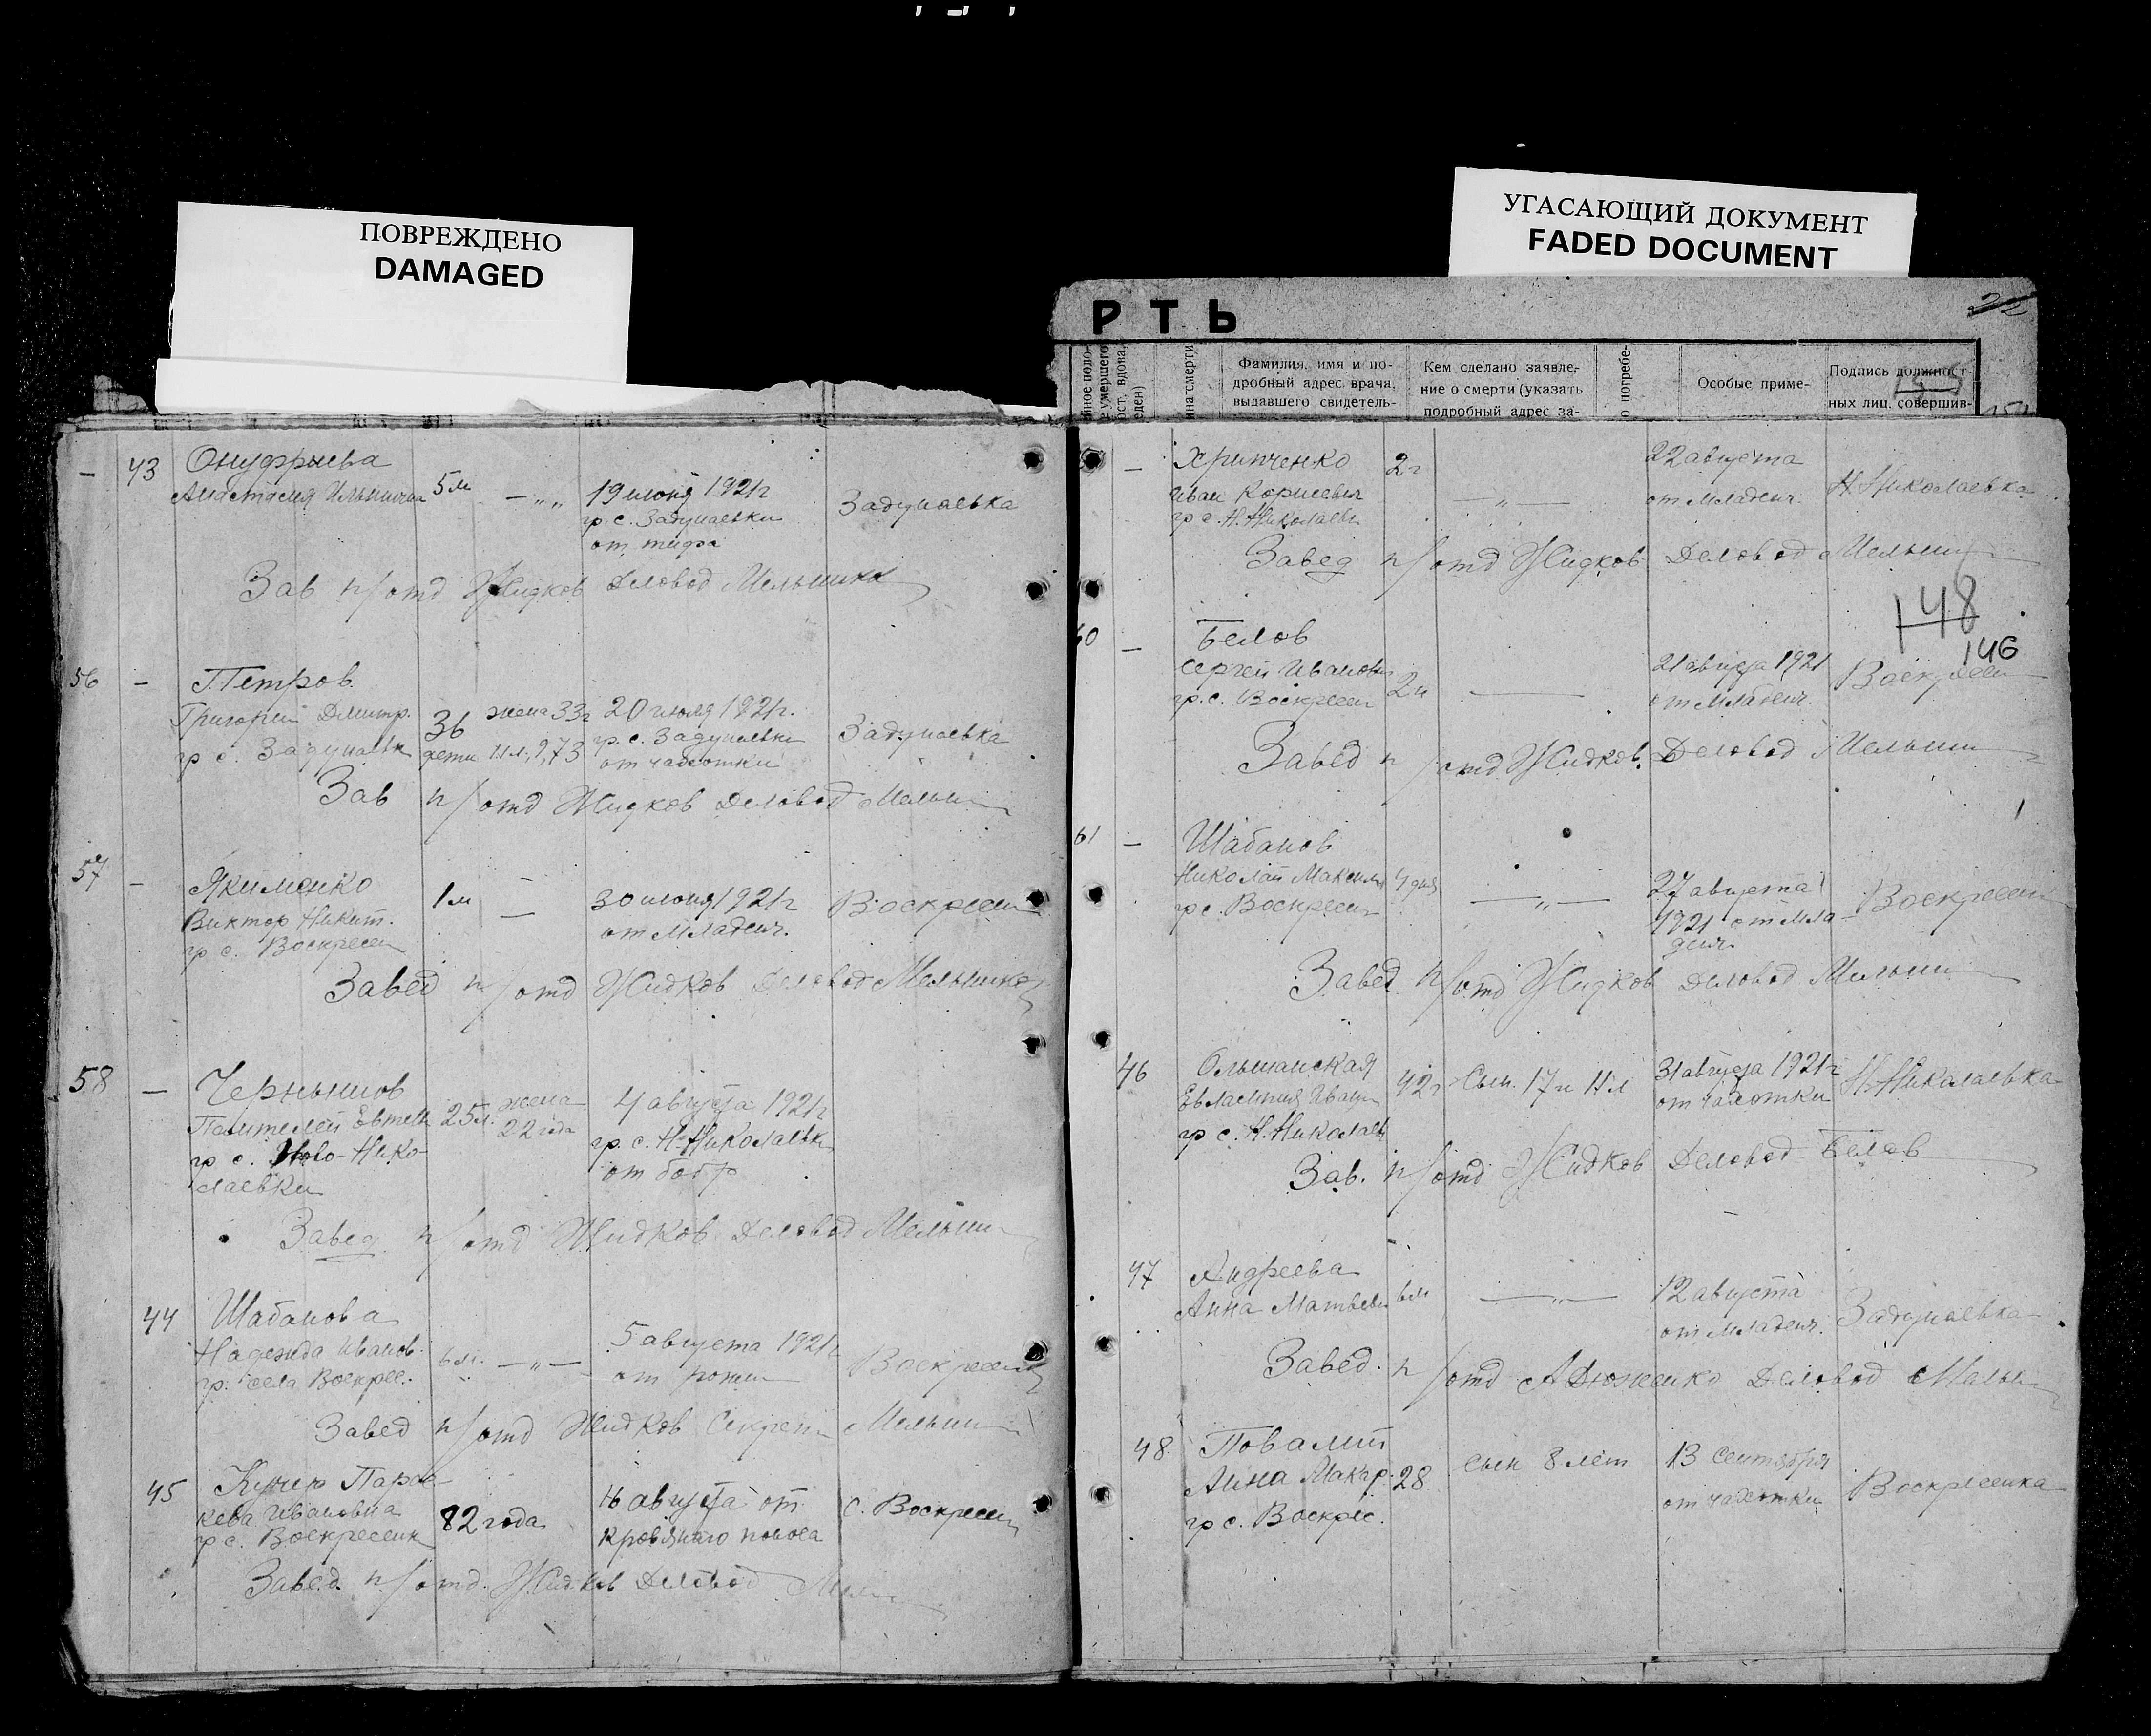 ПОВРЕЖДЕНО
DAMAGED
УГАСАЮЩИЙ ДОКУМЕНТ
FADED DOCUMENT
Р Т Ь
Фамилия, имя и по-
дробный адрес врача,
выдавшего свидетель-
Кем сделано заявле-
ние о смерти (указать
подробный адрес за-
о погребе-
Особые приме-
Подпись должност-
ных лиц, совершив-
— 43 Онуфриева
Анастасия Ильинична 5 м — „ 19 июня 1921 г
гр. с. Задунаевки
от тифа
Задунаевка
Зав п/отд Жидков Деловод Мельник
56 — Петров
Григорий Дмитр. 36 жена 33 г 20 июля 1921 г.
гр с. Задунаевк дети 11 л, 9, 7 3 гр. с. Задунаевки
от чахотки
Задунаевка
Зав п/отд Жидков Деловод Мельни
57 — Якименко
Виктор Никит. 1 м — 30 июня 1921 г
гр с. Воскресен от младенч.
Воскресен
Завед п/отд Жидков Деловод Мельник
58 — Чернышов
25 л. жена
22 года
4 августа 1921 г
гр с. Ново-Нико-
лаевки
гр. с. Н-Николаевки
от
Завед п/отд Жидков Деловод Мельни
44 Шабанова
Надежда Иванов.
гр. села Воскрес.
— „ — 5 августа 1921 г
от
Воскресен
Завед п/отд Жидков Секрет Мельни
45 Парас
кева Ивановна
гр с. Воскресенк
82 года
16 августа от
кровяного поноса
с. Воскресен
Завед п/отд. Жидков Деловод
— Хрипченко 2 г
Иван Корнеевич
гр с. Н. Николаевк
— „ —
22 августа
от младенч.
Н. Николаевка
Завед п/отд Жидков Деловод Мельни
148
146
60 — Белов
Сергей Иванович
гр. с. Воскресен
21 августа 1921
от младенч.
Воскресен
Завед п/отд Жидков. Деловод Мельни
61 — Шабанов
Николай Максим 4 дня
гр с. Воскресен
— „ —
27 августа
1921 от мла-
денч.
Воскресен
Завед п/отд Жидков Деловод Мельни
46 Ольшанская
Евлампия Иван 42 г Сын. 17 и 11 л
гр с. Н. Николаев
31 августа 1921 г
от чахотки
Н. Николаевка
Зав. п/отд Жидков Деловод Белов
47 Андреева
Анна Матвеев 6 м — „ —
12 августа
от младенч.
Задунаевка
Завед. п/отд Деловод
48
Анна Макар. 28
гр с. Воскрес.
сын 8 лет
13 сентября
от чахотки
Воскресенка